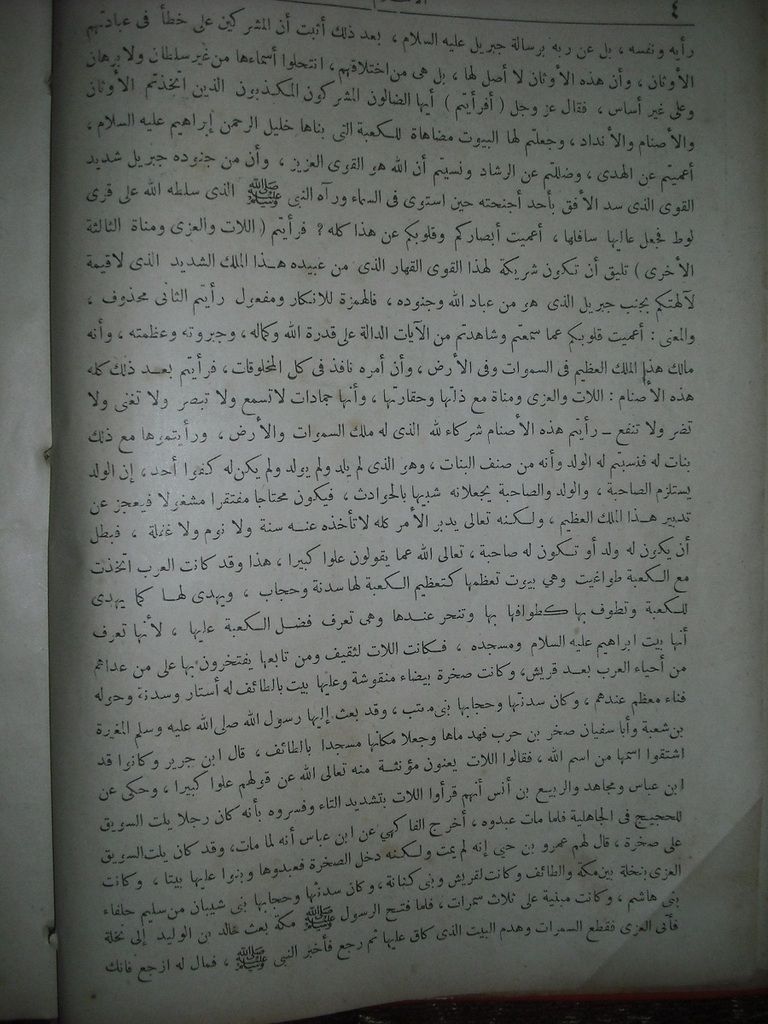 ٤
رأيه ونفسه ، بل عن ربه برسالة جبريل عليه السلام ، بعد ذلك أثبت أن المشركين على خطأ فى عبادتهم
الأوثان ، وأن هذه الأوثان لا أصل لها ، بل هى من اختلاقهم ، انتحلوا أسماءها من غير سلطان ولا برهان
وعلى غير أساس ، فقال عز وجل ( أفرأيتم ) أيها الضالون المشركون المكذبون الذين اتخذتم الأوثان
والأصنام والأنداد ، وجعلتم لها البيوت مضاهاة للكعبة التى بناها خليل الرحمن إبراهيم عليه السلام ،
أعميتم عن الهدى ، وضللتم عن الرشاد ونسيتم أن الله هو القوى العزيز ، وأن من جنوده جبريل شديد
القوى الذى سد الأفق بأحد أجنحته حين استوى فى السماء ورآه النبى ﷺ الذى سلطه الله على قرى
لوط فجعل عاليها سافلها ، أعميت أبصاركم وقلوبكم عن هذا كله ? فرأيتم ( اللات والعزى ومناة الثالثة
الأخرى ) تليق أن تكون شريكة لهذا القوى القهار الذى من عبيده هذا الملك الشديد الذى لاقيمة
لآلهتكم بجنب جبريل الذى هو من عباد الله وجنوده ، فالهمزة للانكار ومفعول رأيتم الثانى محذوف ،
والمعنى : أعميت قلوبكم عما سمعتم وشاهدتم من الآيات الدالة على قدرة الله وكماله ، وجبروته وعظمته ، وأنه
مالك هذا الملك العظيم فى السموات وفى الأرض ، وأن أمره نافذ فى كل المخلوقات ، فرأيتم بعد ذلك كله
هذه الأصنام : اللات والعزى ومناة مع ذلتها وحقارتها ، وأنها جمادات لاتسمع ولا تبصر ولا تغنى ولا
تضر ولا تنفع ــ رأيتم هذه الأصنام شركاء لله الذى له ملك السموات والأرض ، ورأيتموها مع ذلك
بنات له فنسبتم له الولد وأنه من صنف البنات ، وهو الذى لم يلد ولم يولد ولم يكن له كفوا أحد ، إن الولد
يستلزم الصاحبة ، والولد والصاحبة يجعلانه شبيها بالحوادث ، فيكون محتاجا مفتقرا مشغولا فيعجز عن
تدبير هذا الملك العظيم ، ولكنه تعالى يدبر الأمر كله لاتأخذه عنه سنة ولا نوم ولا غفلة ، فبطل
أن يكون له ولد أو تكون له صاحبة ، تعالى الله عما يقولون علوا كبيرا ، هذا وقد كانت العرب اتخذت
مع الكعبة طواغيت وهي بيوت تعظمها كتعظيم الكعبة لها سدنة وحجاب ، ويهدى لها كما يهدى
للكعبة وتطوف بها كطوافها بها وتنحر عندها وهى تعرف فضل الكعبة عليها ، لأنها تعرف
أنها بيت ابراهيم عليه السلام ومسجده ، فكانت اللات لثقيف ومن تابعها يفتخرون بها على من عداهم
من أحياء العرب بعد قريش، وكانت صخرة بيضاء منقوشة وعليها بيت بالطائف له أستار وسدنة وحوله
فناء معظم عندهم ، وكان سدنتها وحجابها بنى معتب ، وقد بعث إليها رسول الله صلى الله عليه وسلم المغيرة
بن شعبة وأبا سفيان صخر بن حرب فهد ماها وجعلا مكانها مسجدا بالطائف ، قال ابن جرير وكانوا قد
اشتقوا اسمها من اسم الله ، فقالوا اللات يعنون مؤنثة منه تعالى الله عن قولهم علوا كبيرا ، وحكى عن
ابن عباس ومجاهد والربيع بن أنس أنهم قرأوا اللات بتشديد التاء وفسروه بأنه كان رجلا يلت السويق
للحجيج فى الجاهلية فلما مات عبدوه ، أخرج الفاكهي عن ابن عباس أنه لما مات، وقد كان يلت السويق
على صخرة ، قال لهم عمرو بن حى إنه لم يمت ولكنه دخل الصخرة فعبدوها وبنوا عليها بيتا ، وكانت
العزى بنخلة بين مكة والطائف وكانت لقريش وبنى كنانة ، وكان سدنتها وحجابها بنى شيبان من سليم حلفاء
بنى هاشم ، وكانت مبنية على ثلاث سمرات ، فلما فتح الرسول ﷺ مكة بعث خالد بن الوليد إلى نخلة
فأتى العزى فقطع السمرات وهدم البيت الذى كان عليها ثم رجع فأخبر النبى ﷺ ، فقال له ارجع فانك